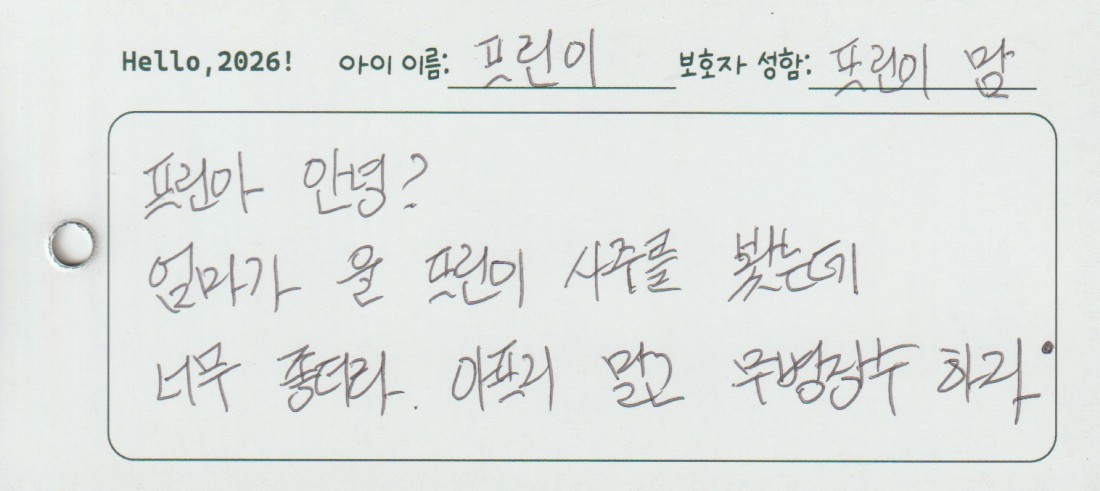 Hello,2026! 아이 이름: 프린이 보호자 성함: 프린이 맘
프린아 안녕?
엄마가 울 프린이 사주를 봤는데
너무 좋더라. 아프지 말고 무병장수 하자.